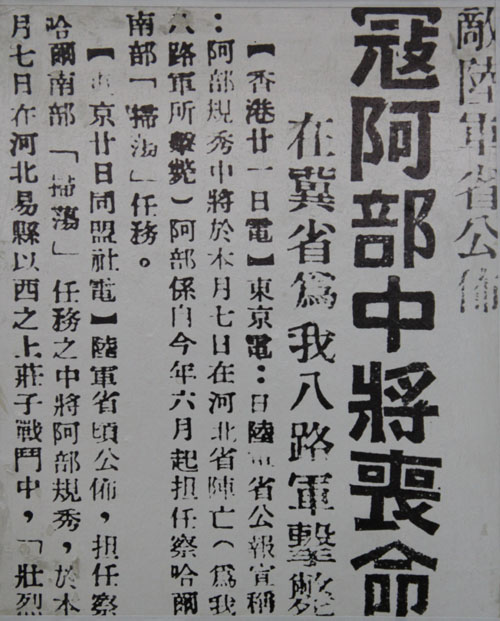 敵陸軍省公佈
寇阿部中將喪命
在冀省爲我八路軍擊斃
【香港廿一日電】東京電：日陸軍省公報宣稱
：阿部規秀中將於本月七日在河北省陣亡（爲我
八路軍所擊斃）阿部係自今年六月起担任察哈爾
南部「掃蕩」任務。
【東京廿日同盟社電】陸軍省頃公佈，担任察
哈爾南部「掃蕩」任務之中將阿部規秀，於本
月七日在河北易縣以西之上莊子戰鬥中，「壯烈